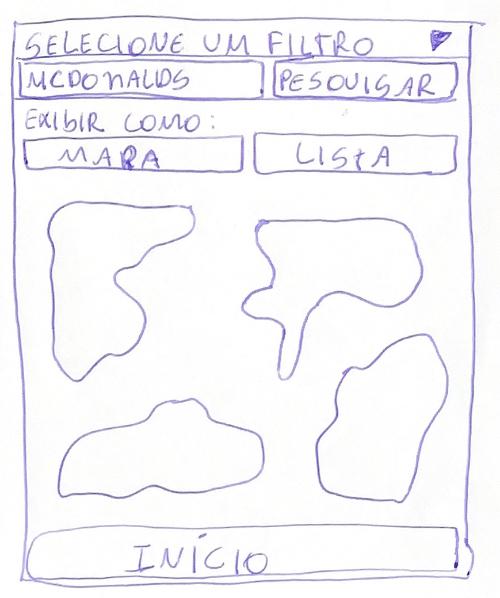 SELECIONE UM FILTRO
MCDONALDS PESQUISAR
EXIBIR COMO:
MAPA LISTA
INÍCIO